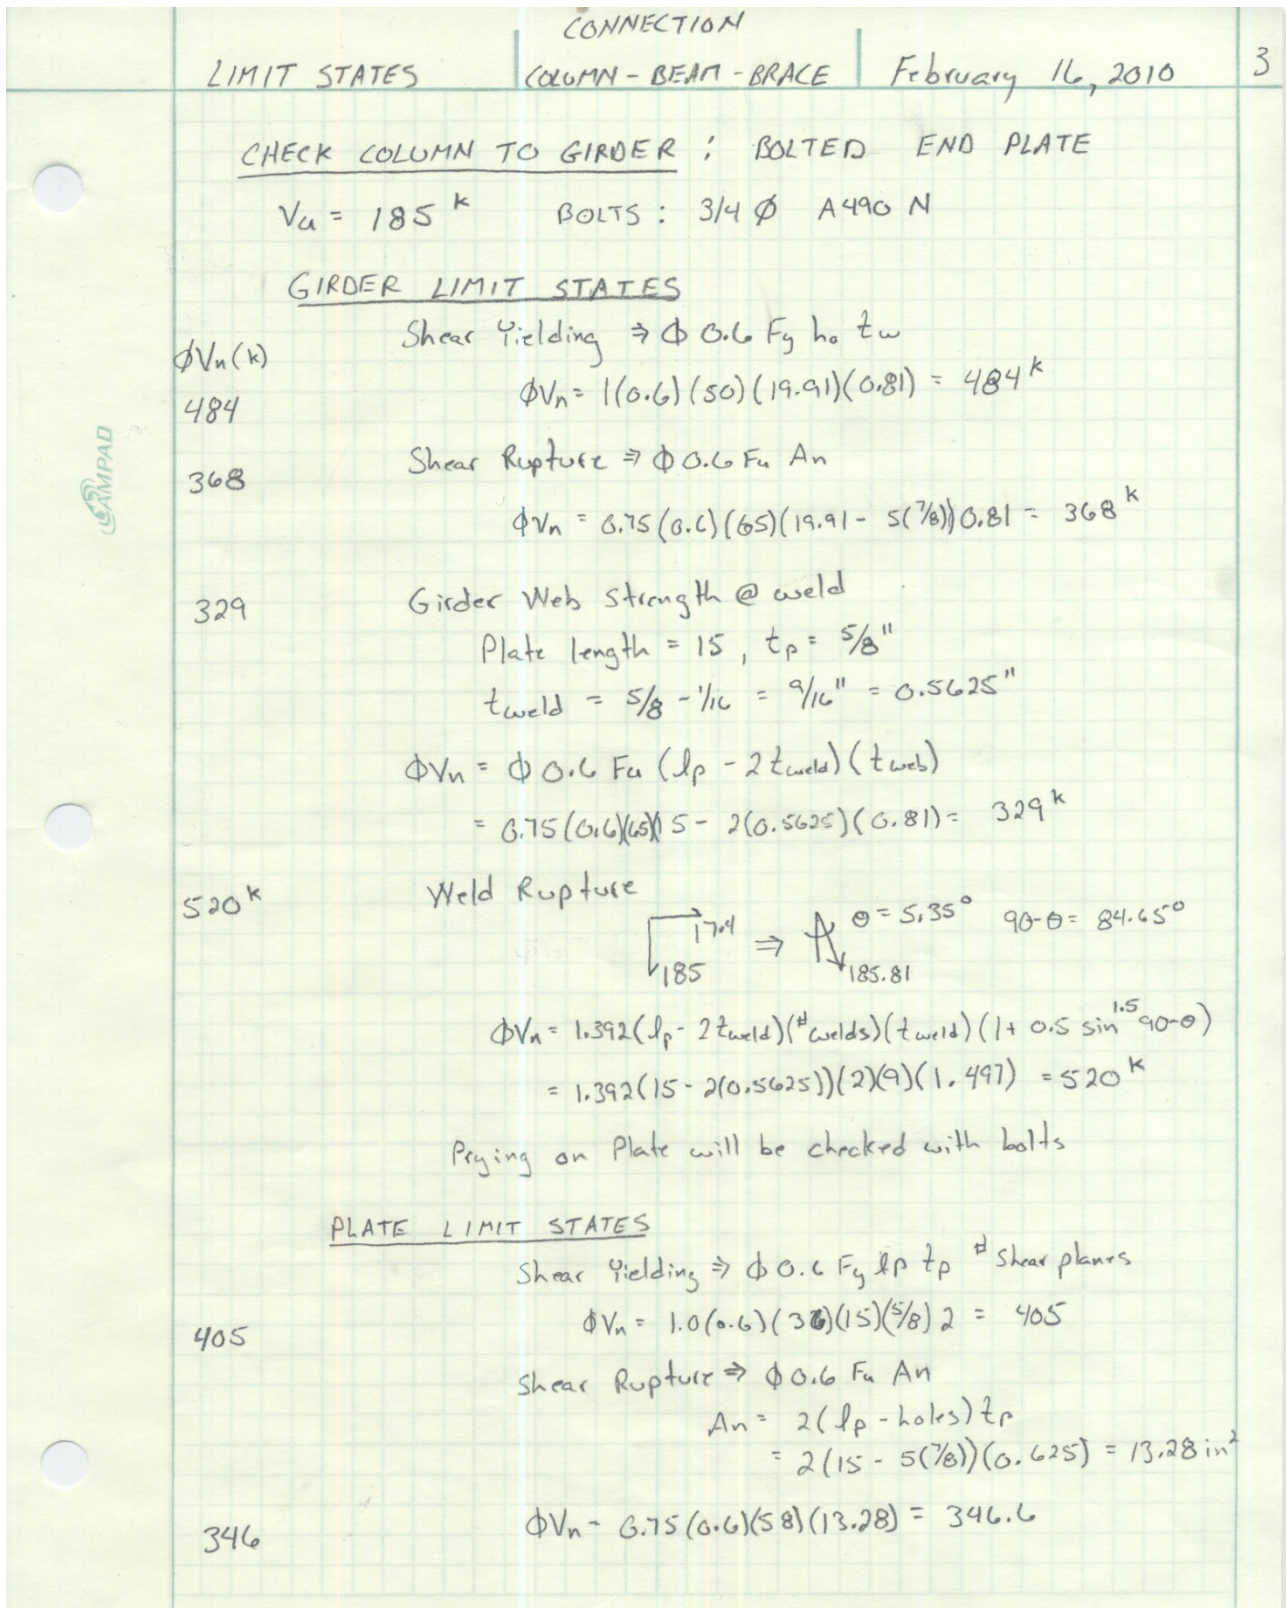 CONNECTION
LIMIT STATES COLUMN - BEAM - BRACE February 16, 2010 3
CHECK COLUMN TO GIRDER : BOLTED END PLATE
Vu = 185 k BOLTS : 3/4 Ø A490 N
GIRDER LIMIT STATES
Shear Yielding ⇒ ϕ 0.6 Fy ho tw
ϕVn (k)
ϕVn = 1(0.6)(50)(19.91)(0.81) = 484 k
484
Shear Rupture ⇒ ϕ 0.6 Fu An
368
ϕVn = 0.75(0.6)(65)(19.91 - 5(7/8))0.81 = 368 k
329 Girder Web Strength @ weld
Plate length = 15, tp = 5/8"
tweld = 5/8 - 1/16 = 9/16" = 0.5625"
ϕVn = ϕ 0.6 Fu (lp - 2 tweld)(tweb)
= 0.75(0.6)(65)(15 - 2(0.5625)(0.81) = 329 k
520 k Weld Rupture
17.4 ⇒ θ = 5.35° 90-θ = 84.65°
185 185.81
ϕVn = 1.392(lp - 2tweld)(# welds)(tweld)(1 + 0.5 sin^1.5 90-θ)
= 1.392(15 - 2(0.5625))(2)(9)(1.497) = 520 k
Prying on Plate will be checked with bolts
PLATE LIMIT STATES
Shear Yielding ⇒ ϕ 0.6 Fy lp tp # shear planes
ϕVn = 1.0(0.6)(36)(15)(5/8) 2 = 405
405
Shear Rupture ⇒ ϕ 0.6 Fu An
An = 2(lp - holes) tp
= 2(15 - 5(7/8))(0.625) = 13.28 in²
ϕVn = 0.75(0.6)(58)(13.28) = 346.6
346
AMPAD